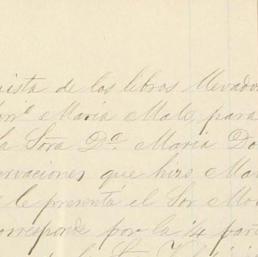 vista de los libros llevados
Maria Mato, para
la Sra Dª Maria Do
ervaciones que hizo Ma
le presenta el Sor Mo
corresponde por la 1/4 par